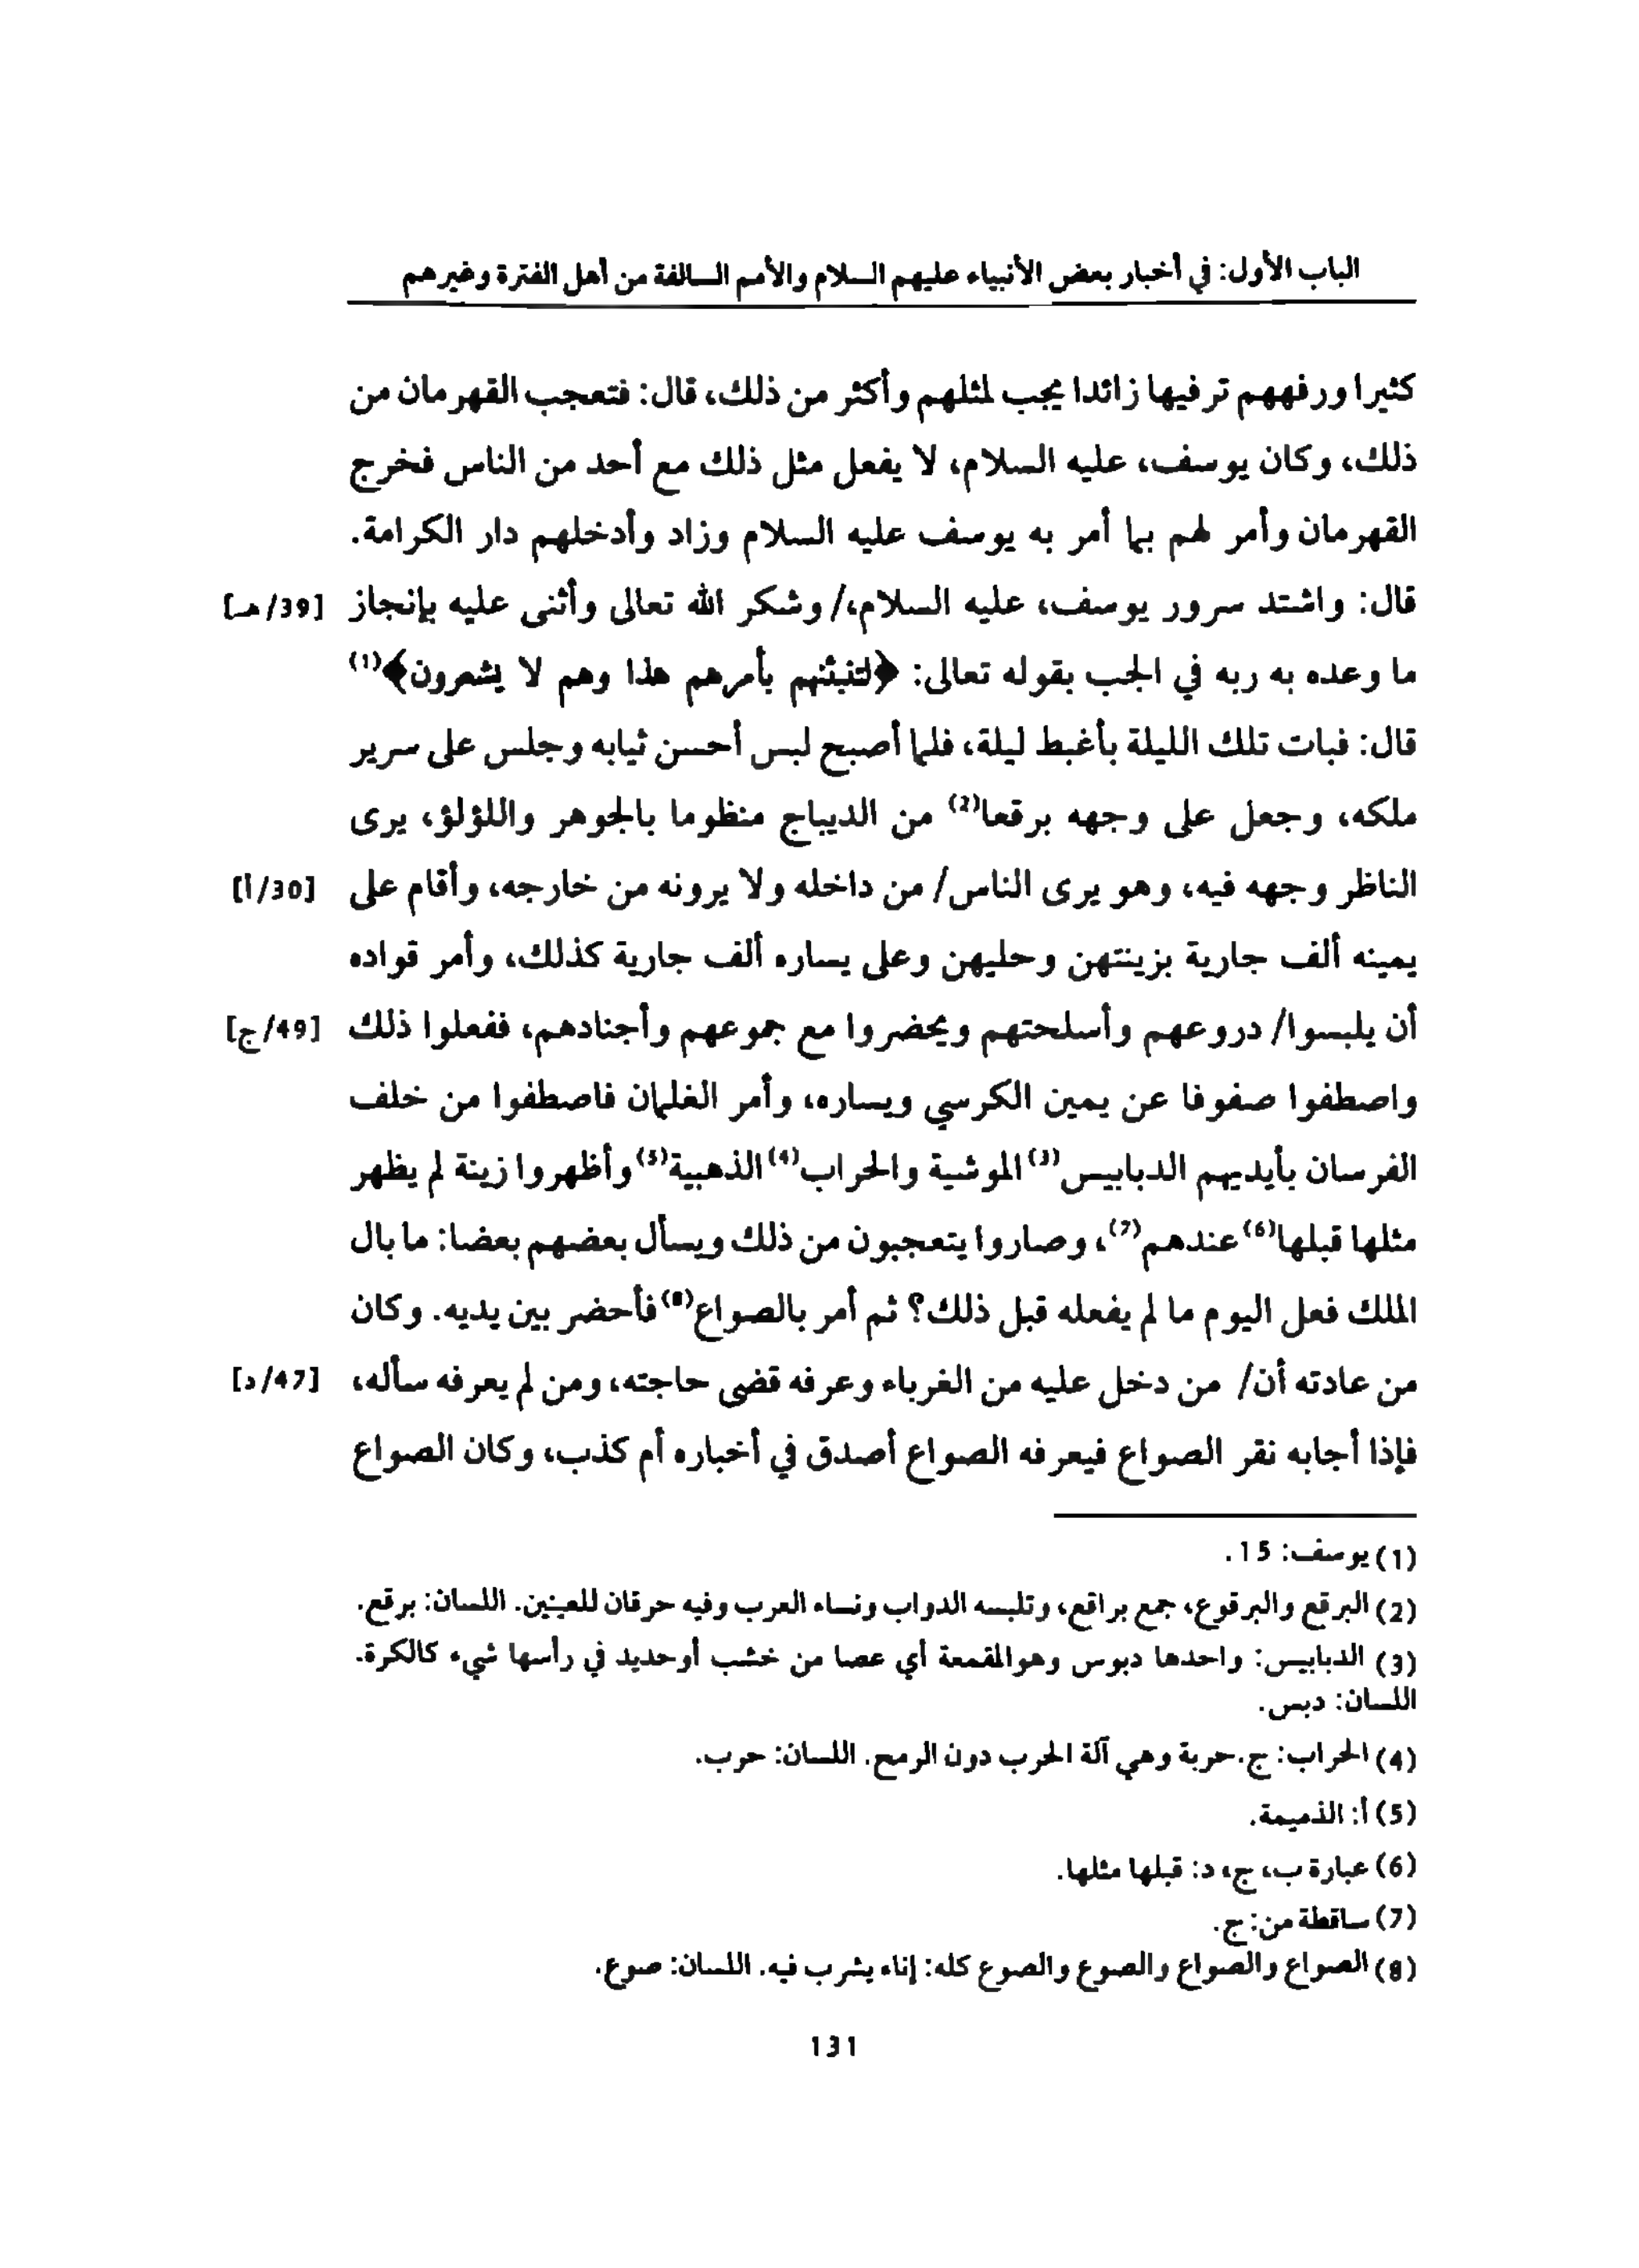 الباب الأول: في أخبار بعض الأنبياء عليهم السلام والأمم السالفة من أهل الفترة وغيرهم
كثيرا ورفههم ترفيها زائدا يجب لمثلهم وأكثر من ذلك، قال: فتعجب القهرمان من
ذلك، وكان يوسف، عليه السلام، لا يفعل مثل ذلك مع أحد من الناس فخرج
القهرمان وأمر لهم بما أمر به يوسف عليه السلام وزاد وأدخلهم دار الكرامة.
قال: واشتد سرور يوسف، عليه السلام،/ وشكر الله تعالى وأثنى عليه بإنجاز [39/هـ]
ما وعده به ربه في الجب بقوله تعالى: ﴿لتنبئنهم بأمرهم هذا وهم لا يشعرون﴾(1)
قال: فبات تلك الليلة بأغبط ليلة، فلما أصبح لبس أحسن ثيابه وجلس على سرير
ملكه، وجعل على وجهه برقعا(2) من الديباج منظوما بالجوهر واللؤلؤ، يرى
الناظر وجهه فيه، وهو يرى الناس/ من داخله ولا يرونه من خارجه، وأقام على [30/أ]
يمينه ألف جارية بزينتهن وحليهن وعلى يساره ألف جارية كذلك، وأمر قواده
أن يلبسوا/ دروعهم وأسلحتهم ويحضروا مع جموعهم وأجنادهم، ففعلوا ذلك [49/ج]
واصطفوا صفوفا عن يمين الكرسي ويساره، وأمر الغلمان فاصطفوا من خلف
الفرسان بأيديهم الدبابيس(3) الموشية والحراب(4) الذهبية(5) وأظهروا زينة لم يظهر
مثلها قبلها(6) عندهم(7)، وصاروا يتعجبون من ذلك ويسأل بعضهم بعضا: ما بال
الملك فعل اليوم ما لم يفعله قبل ذلك؟ ثم أمر بالصواع(8) فأحضر بين يديه. وكان
من عادته أن/ من دخل عليه من الغرباء وعرفه قضى حاجته، ومن لم يعرفه سأله، [47/د]
فإذا أجابه نقر الصواع فيعرفه الصواع أصدق في أخباره أم كذب، وكان الصواع
(1) يوسف: 15.
(2) البرقع والبرقوع، جمع براقع، وتلبسه الدواب ونساء العرب وفيه حرقان للعينين. اللسان: برقع.
(3) الدبابيس: واحدها دبوس وهوالمقمعة أي عصا من خشب أوحديد في رأسها شيء كالكرة.
اللسان: دبس.
(4) الحراب: ج.حربة وهي آلة الحرب دون الرمح. اللسان: حرب.
(5) أ: الذميمة.
(6) عبارة ب، ج، د: قبلها مثلها.
(7) ساقطة من: ج.
(8) الصواع والصواع والصوع والصوع كله: إناء يشرب فيه. اللسان: صوع.
131